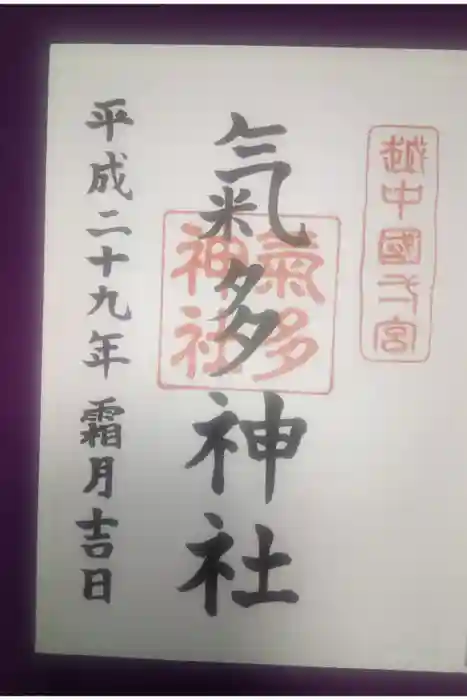 越中國弌宮
氣多神社
氣多
神社
平成二十九年霜月吉日